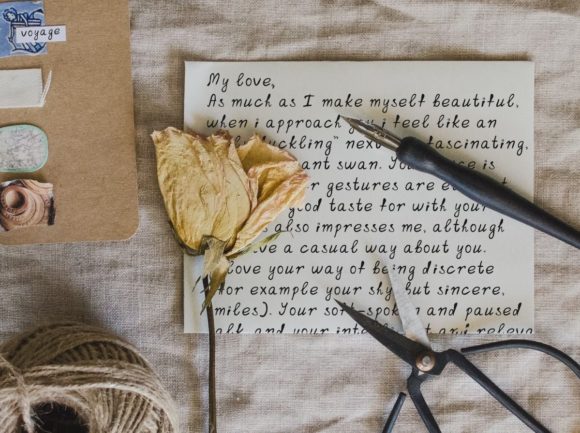 voyage
My love,
As much as I make myself beautiful,
when i approach you i feel like an
duckling" next fascinating,
swan.
is
gestures are
good taste for with your
also impresses me, although
a casual way about you.
love your way of being discrete
for example your shy but sincere,
Your soft-spoken and paused
and your